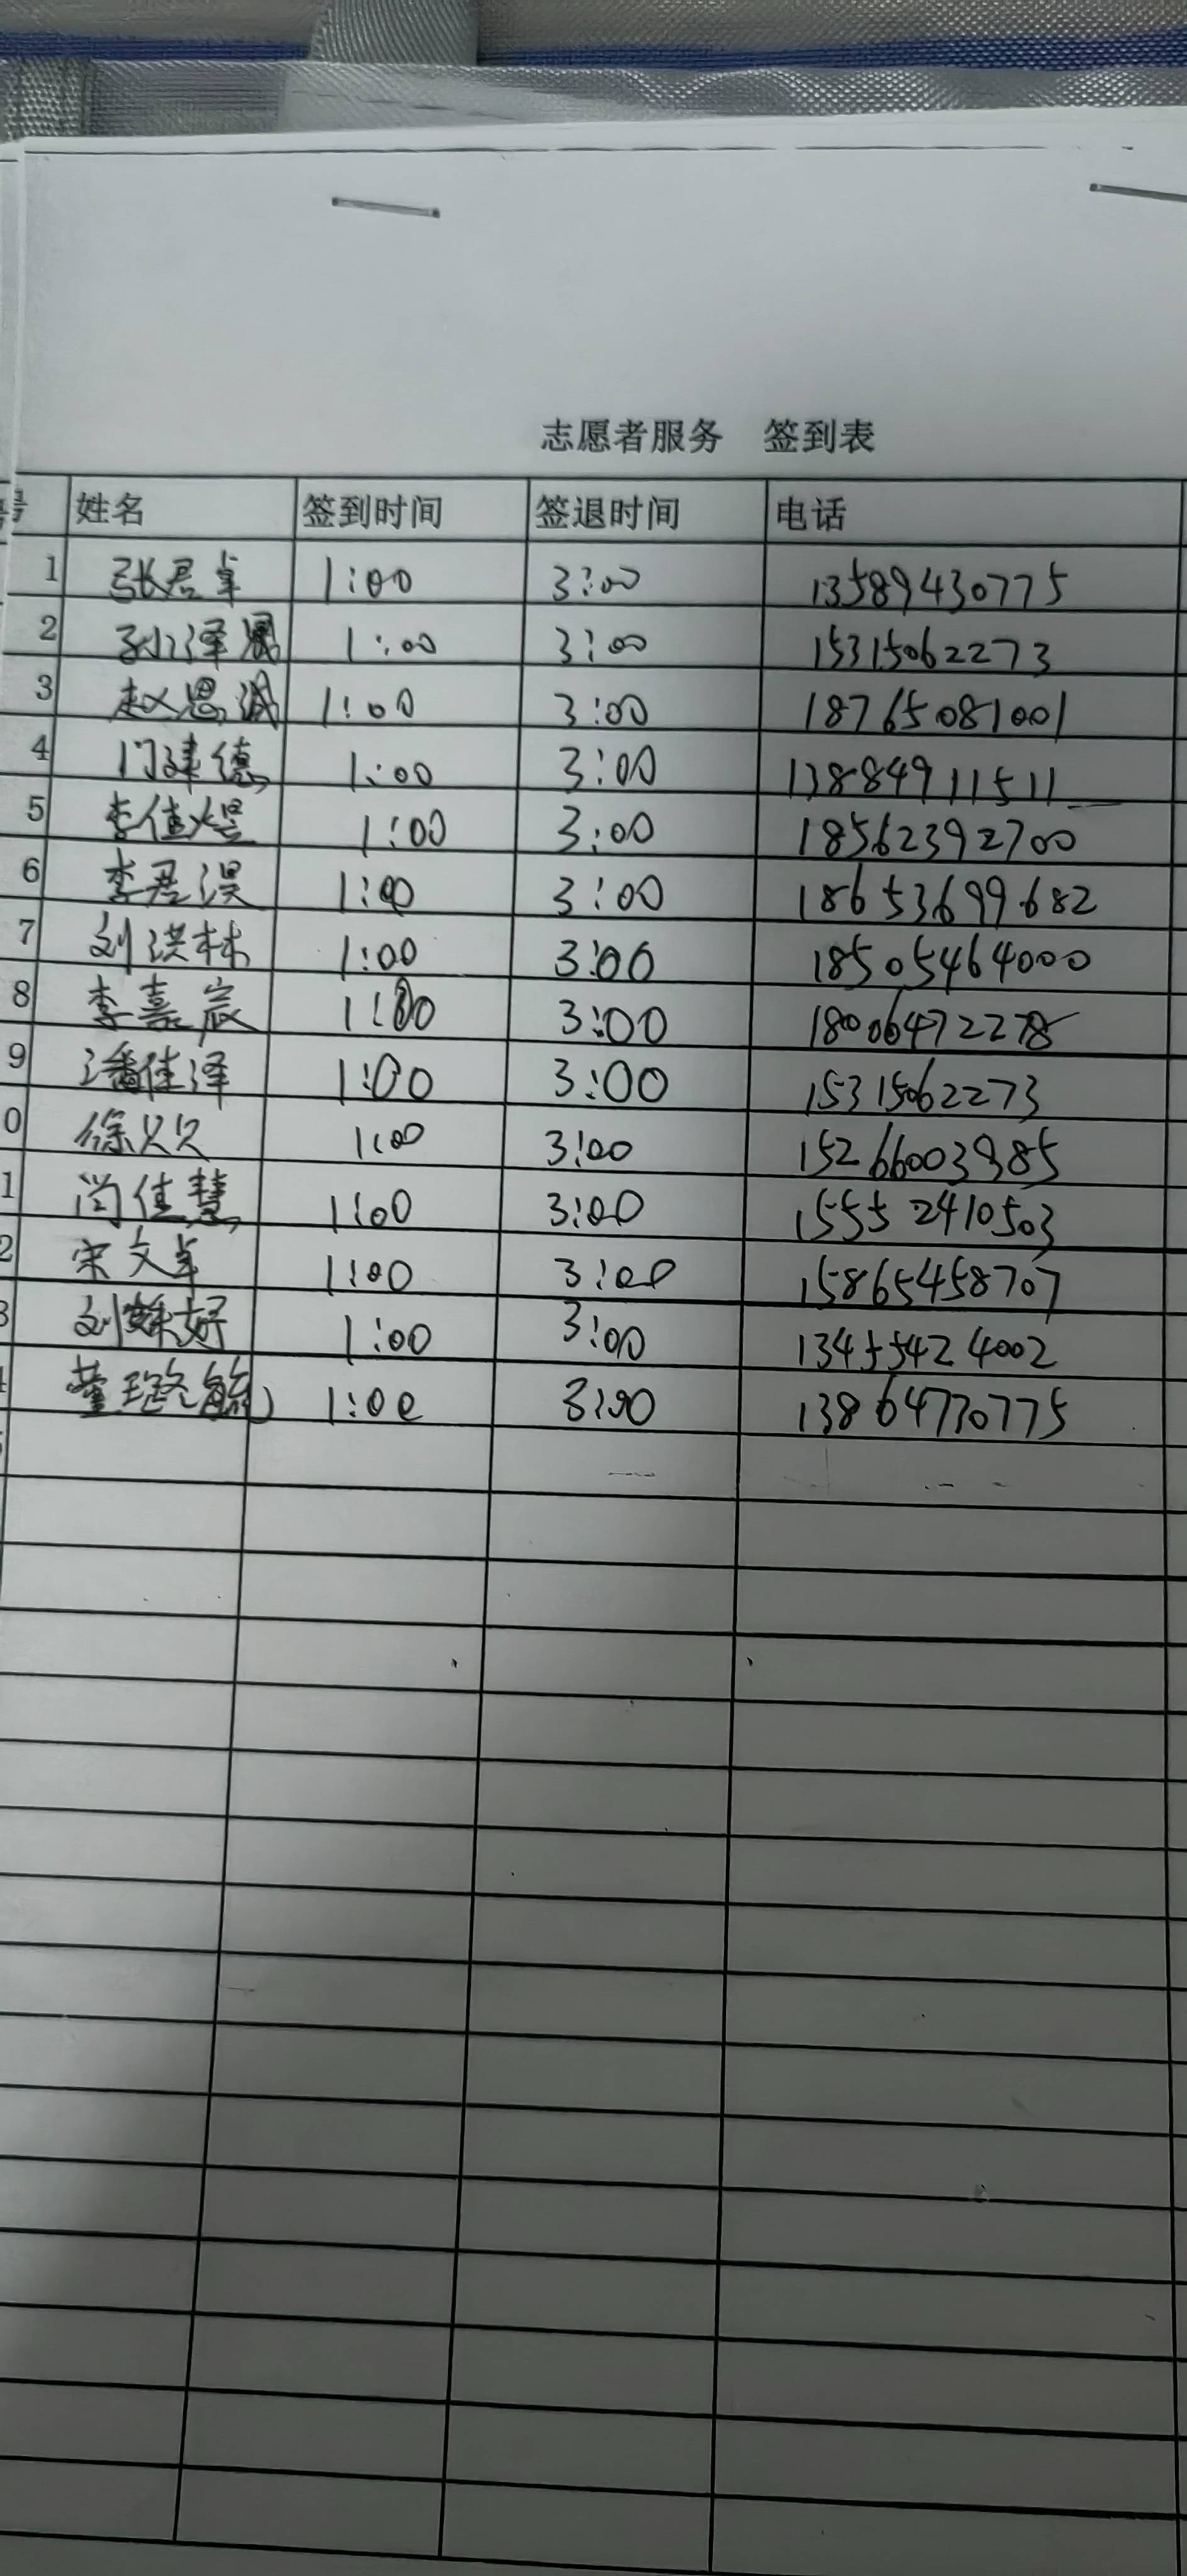 志愿者服务 签到表
号 姓名 签到时间 签退时间 电话
1 张君卓 1:00 3:00 13589430775
2 孙泽晨 1:00 3:00 15315062273
3 赵恩诚 1:00 3:00 18765081001
4 门建德 1:00 3:00 13884911511
5 李佳煜 1:00 3:00 18562392700
6 李君淏 1:00 3:00 18653699682
7 刘洪林 1:00 3:00 18505464000
8 李嘉宸 1:00 3:00 18006472278
9 潘佳泽 1:00 3:00 15315062273
0 徐 1:00 3:00 15266003985
1 尚佳慧 1:00 3:00 15552410503
2 宋文卓 1:00 3:00 15865458707
3 刘姝妤 1:00 3:00 13455424002
董璐毓 1:00 3:00 13864730775